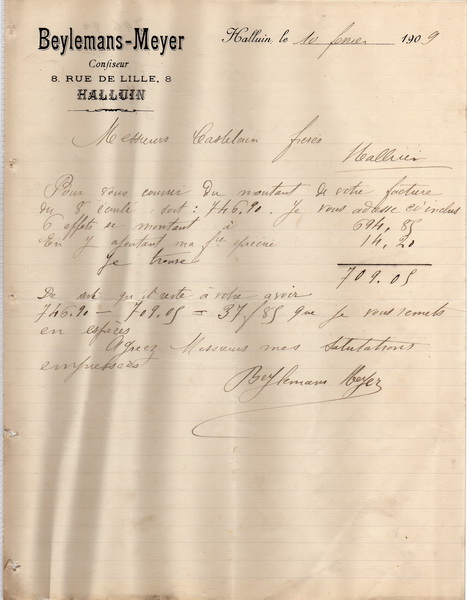 Beylemans-Meyer
Confiseur
8, RUE DE LILLE, 8
HALLUIN
Halluin, le 10 fevrier 1909
Messieurs Castelain frères
Halluin
Pour vous couvrir du montant de votre facture
du 8 écoulé, soit : 746,90. Je vous adresse ci inclus
6 effets se montant à 694,85
En y ajoutant ma fre 14,20
Je trouve 709.05
De sorte qu'il reste à votre avoir
746.90 — 709.05 = 37,85 que je vous remets
en espèces
Agréez Messieurs mes salutations
empressées
Beylemans Meyer